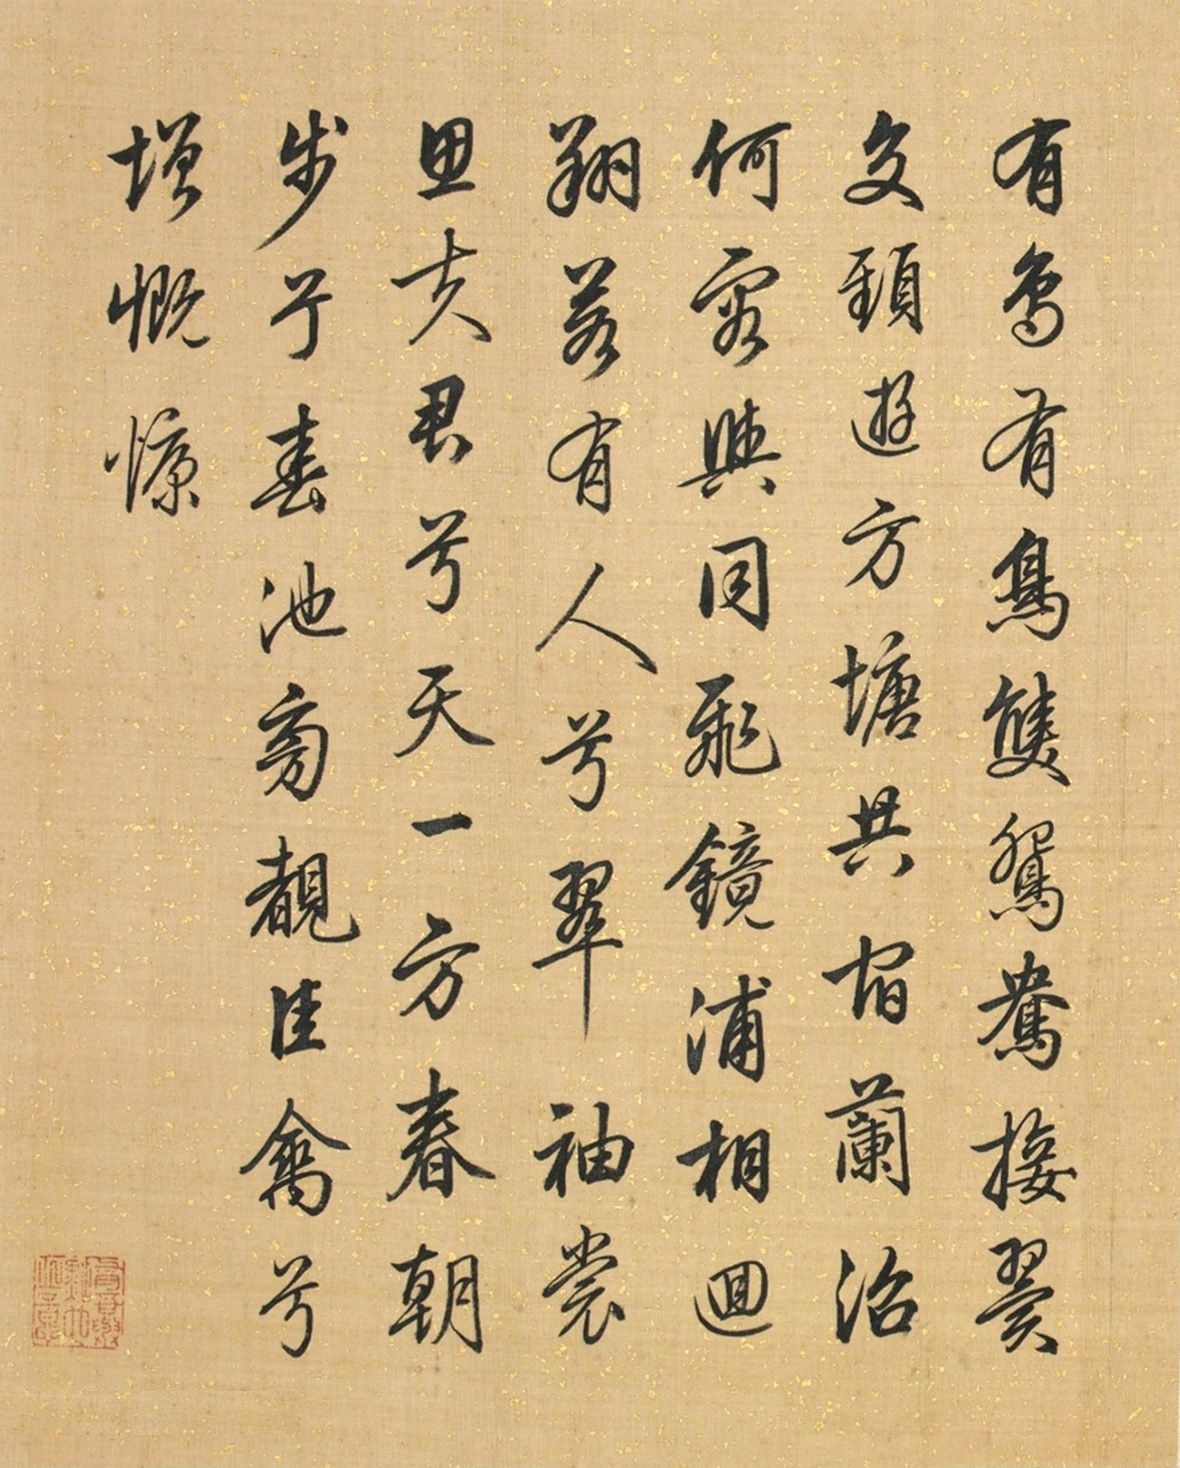 有鳥有鳥雙鴛鴦接翼
交頸遊方塘共宿蘭沼
何容與同飛鏡浦相迴
翔若有人兮翠袖裳
思夫君兮天一方春朝
步于池旁覩佳禽兮
增慨慷